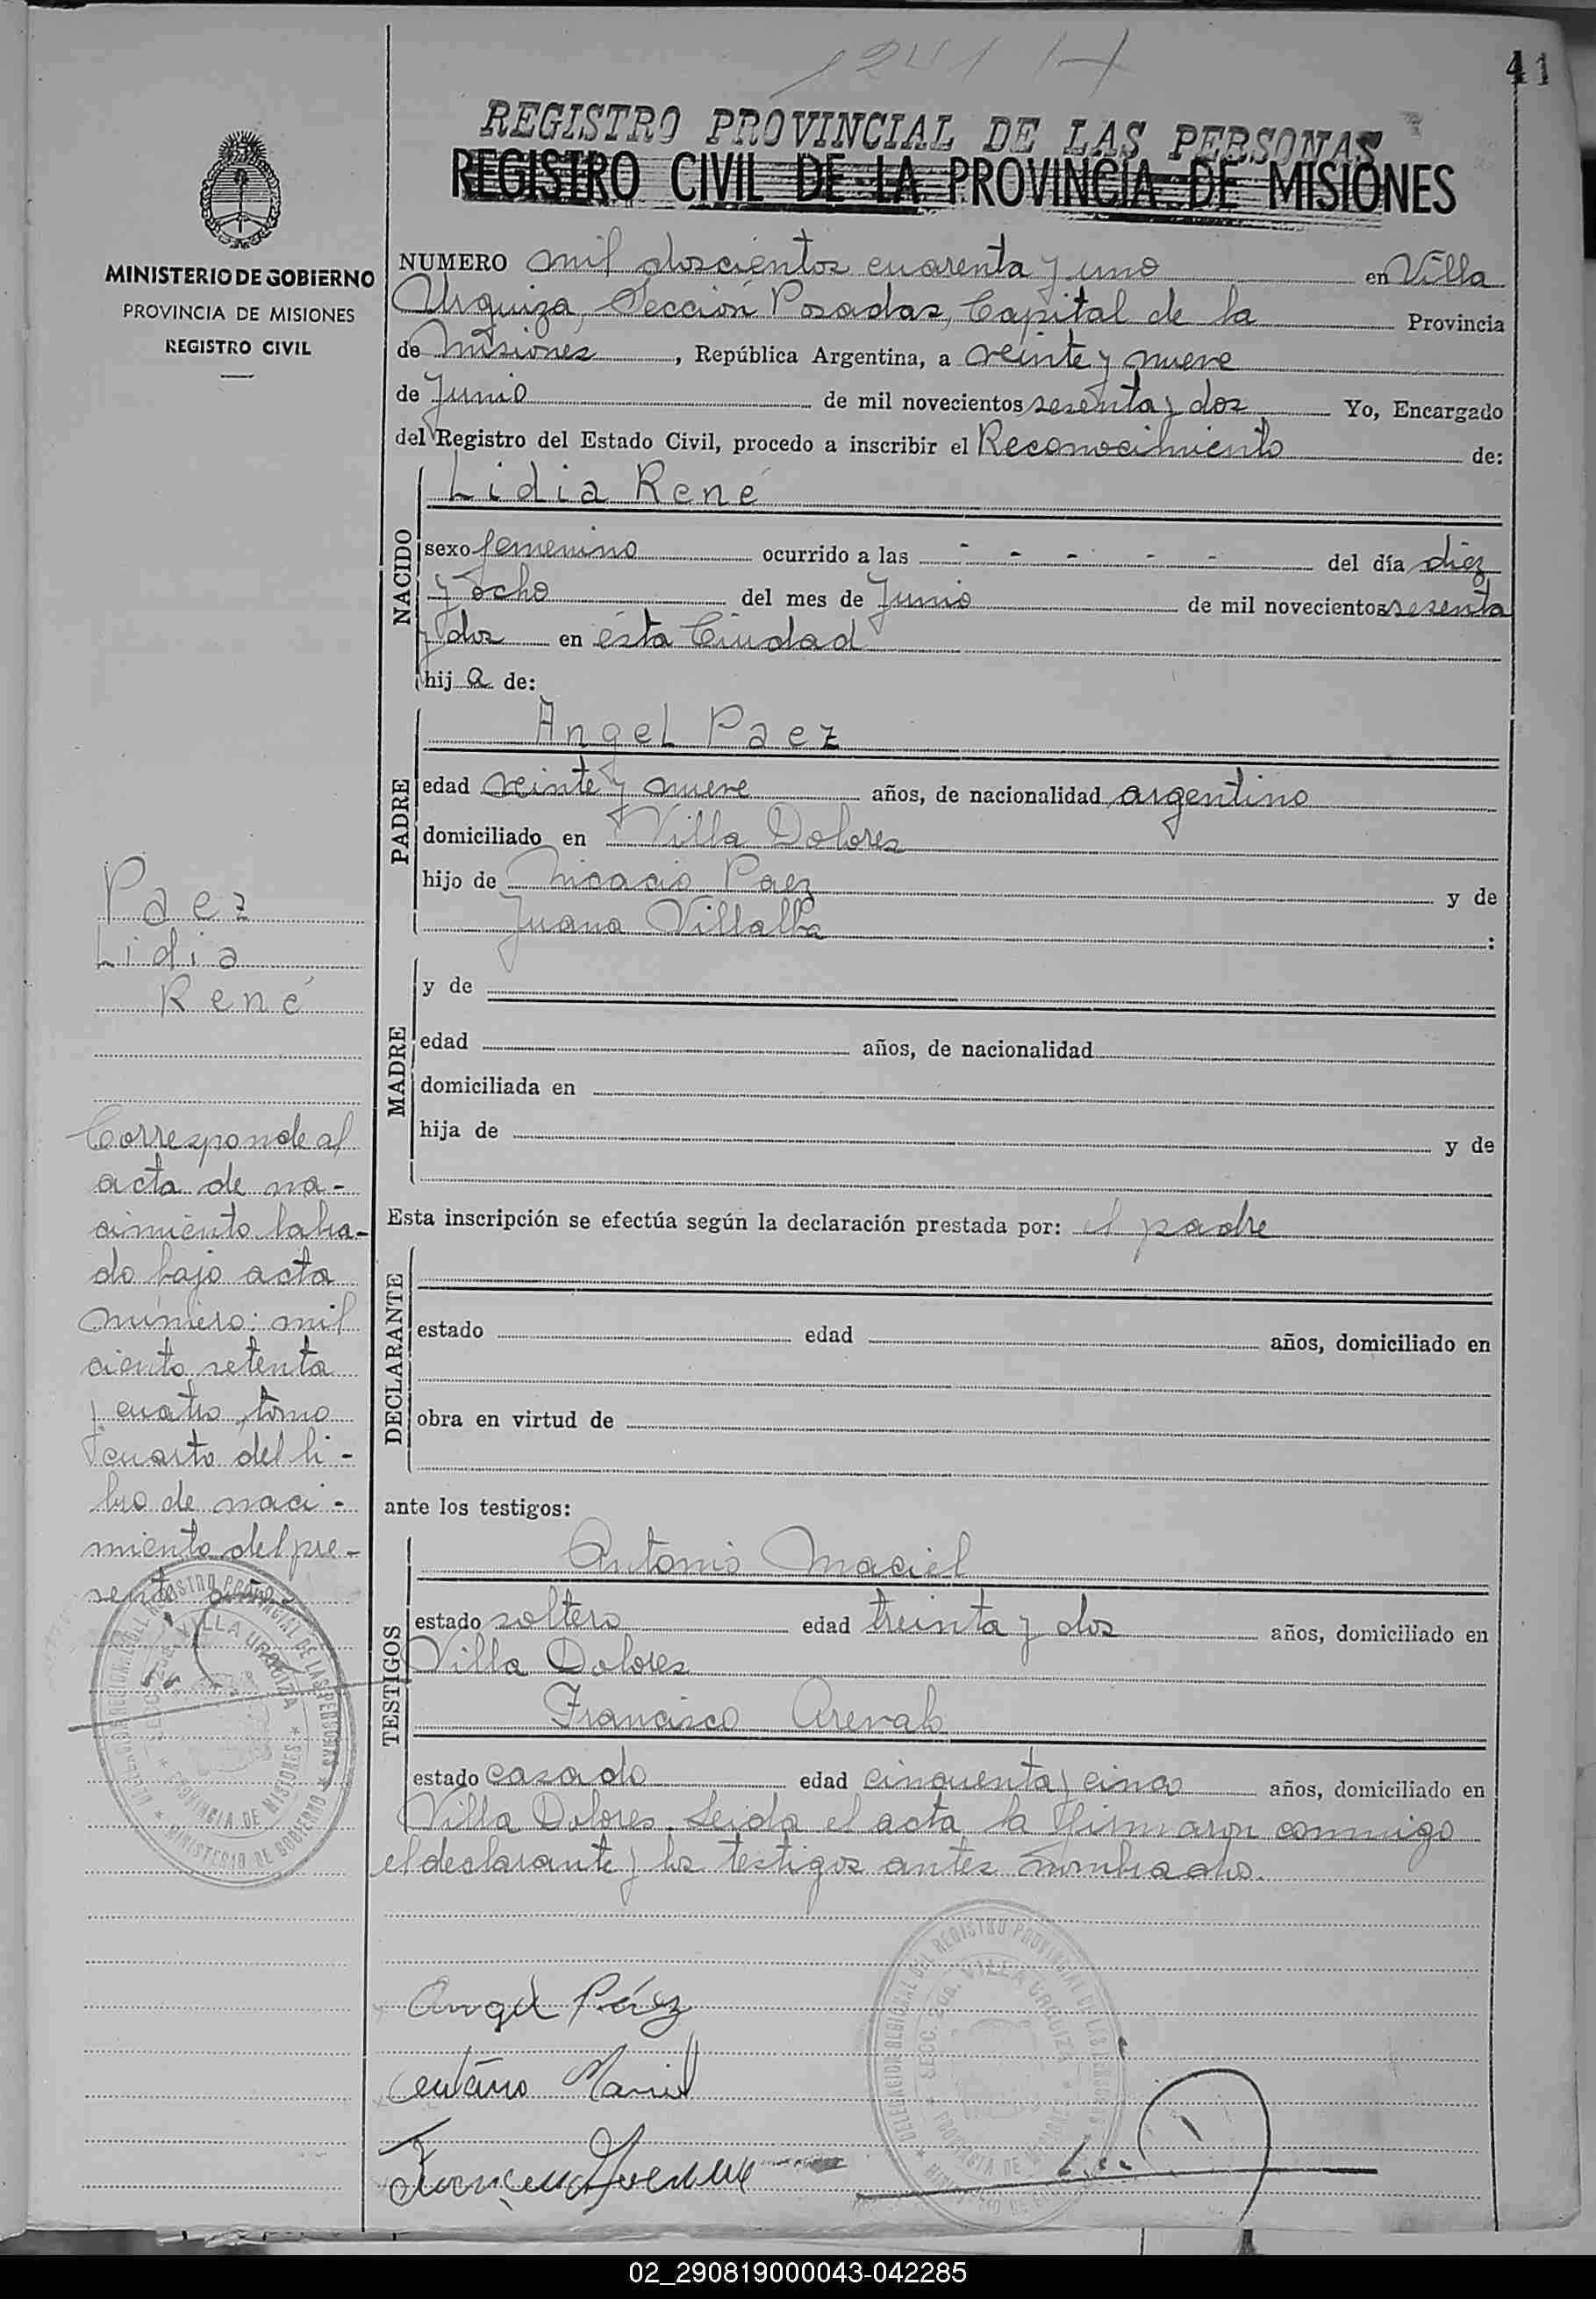 1241
41
MINISTERIO DE GOBIERNO
PROVINCIA DE MISIONES
REGISTRO CIVIL
REGISTRO PROVINCIAL DE LAS PERSONAS
REGISTRO CIVIL DE LA PROVINCIA DE MISIONES
NUMERO mil doscientos cuarenta y uno en Villa
Urquiza, Sección Posadas, Capital de la Provincia
de Misiones, República Argentina, a veinte y nueve
de Junio de mil novecientos sesenta y dos Yo, Encargado
del Registro del Estado Civil, procedo a inscribir el Reconocimiento de:
NACIDO
Lidia René
sexo femenino ocurrido a las - - - - - del día diez
y ocho del mes de Junio de mil novecientos sesenta
y dos en ésta Ciudad
hija de:
PADRE
Angel Paez
edad veinte y nueve años, de nacionalidad argentino
domiciliado en Villa Dolores
hijo de Nicacio Paez y de
Juana Villalba :
MADRE
y de
edad años, de nacionalidad
domiciliada en
hija de y de
Esta inscripción se efectúa según la declaración prestada por: el padre
DECLARANTE
estado edad años, domiciliado en
obra en virtud de
ante los testigos:
TESTIGOS
Antonio Maciel
estado soltero edad treinta y dos años, domiciliado en
Villa Dolores
Francisco Arevalo
estado casado edad cincuenta y cinco años, domiciliado en
Villa Dolores. Leida el acta la firmaron conmigo
el declarante y los testigos antes nombrados.
Angel Páez
Paez
Lidia
René
Corresponde al
acta de na-
cimiento labra-
do bajo acta
número: mil
ciento setenta
y cuatro, tomo
cuarto del li-
bro de naci-
miento del pre-
sente año
DELEGACION REGIONAL DEL REGISTRO PROVINCIAL DE LAS PERSONAS
SECC. 2da. VILLA URQUIZA
PROVINCIA DE MISIONES
MINISTERIO DE GOBIERNO
DELEGACION REGIONAL DEL REGISTRO PROVINCIAL DE LAS PERSONAS
SECC. 2da. VILLA URQUIZA
PROVINCIA DE MISIONES
02_290819000043-042285